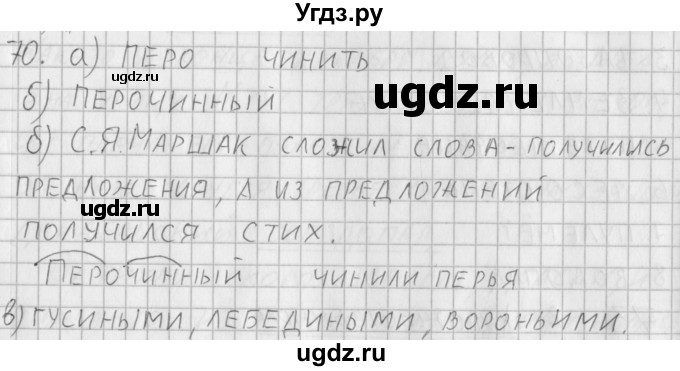 Угдз.ру
70. а) ПЕРО ЧИНИТЬ
ugdz.ru
ugdz.ru
б) ПЕРОЧИННЫЙ
б) С.Я.МАРШАК СЛОЖИЛ СЛОВА - ПОЛУЧИЛИСЬ
ПРЕДЛОЖЕНИЯ, А ИЗ ПРЕДЛОЖЕНИЙ
ugdz.ru
ugdz.ru
ПОЛУЧИЛСЯ СТИХ.
ПЕРОЧИННЫЙ ЧИНИЛИ ПЕРЬЯ
в) ГУСИНЫМИ, ЛЕБЕДИНЫМИ, ВОРОНЬИМИ.
ugdz.ru